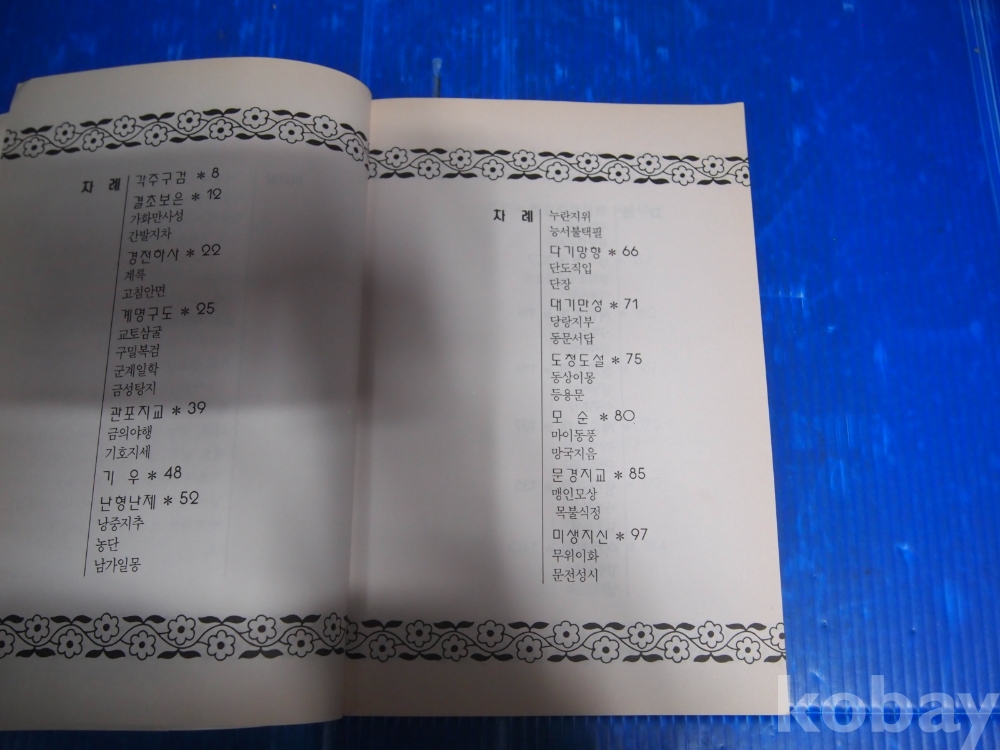 차 례 각주구검 * 8
결초보은 * 12
가화만사성
간발지차
경전하사 * 22
계륵
고침안면
계명구도 * 25
교토삼굴
구밀복검
군계일학
금성탕지
관포지교 * 39
금의야행
기호지세
기 우 * 48
난형난제 * 52
낭중지추
농단
남가일몽
차 례 누란지위
능서불택필
다기망향 * 66
단도직입
단장
대기만성 * 71
당랑지부
동문서답
도청도설 * 75
동상이몽
등용문
모 순 * 80
마이동풍
망국지음
문경지교 * 85
맹인모상
목불식정
미생지신 * 97
무위이화
문전성시
kobay